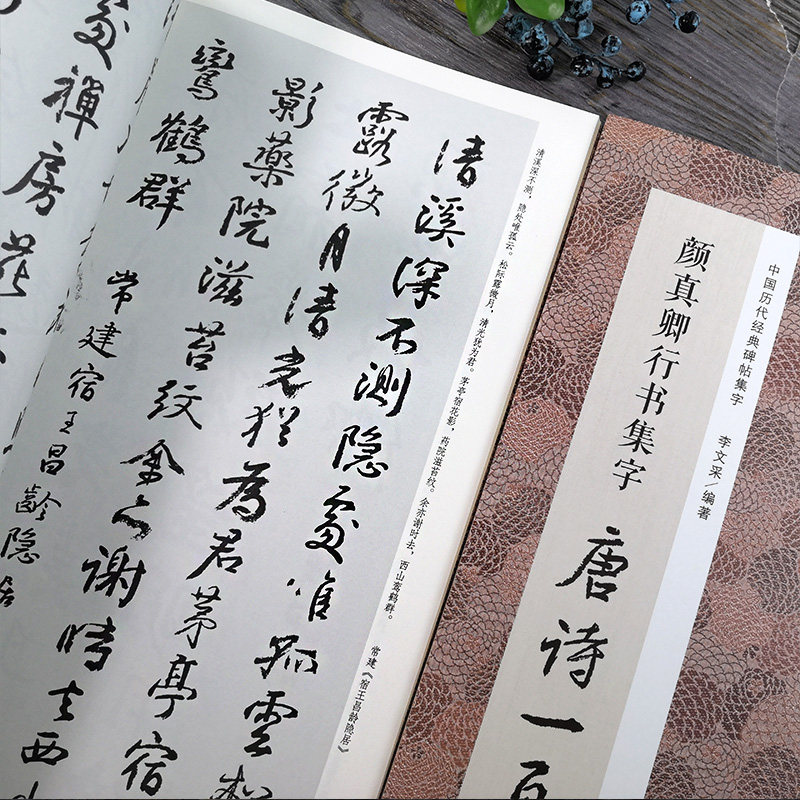 中国历代经典碑帖集字 李文采/编著
颜真卿行书集字 唐诗一百
清溪深不测，隐处唯孤云。松际露微月，清光犹为君。茅亭宿花影，药院滋苔纹。余亦谢时去，西山鸾鹤群。 常建《宿王昌龄隐居》
清溪深不測隐處唯孤雲松
露微月清光猶為君茅亭宿
影藥院滋苔紋余亦謝時去西山
鸞鶴群 常建宿王昌齡隐居
處禪房花